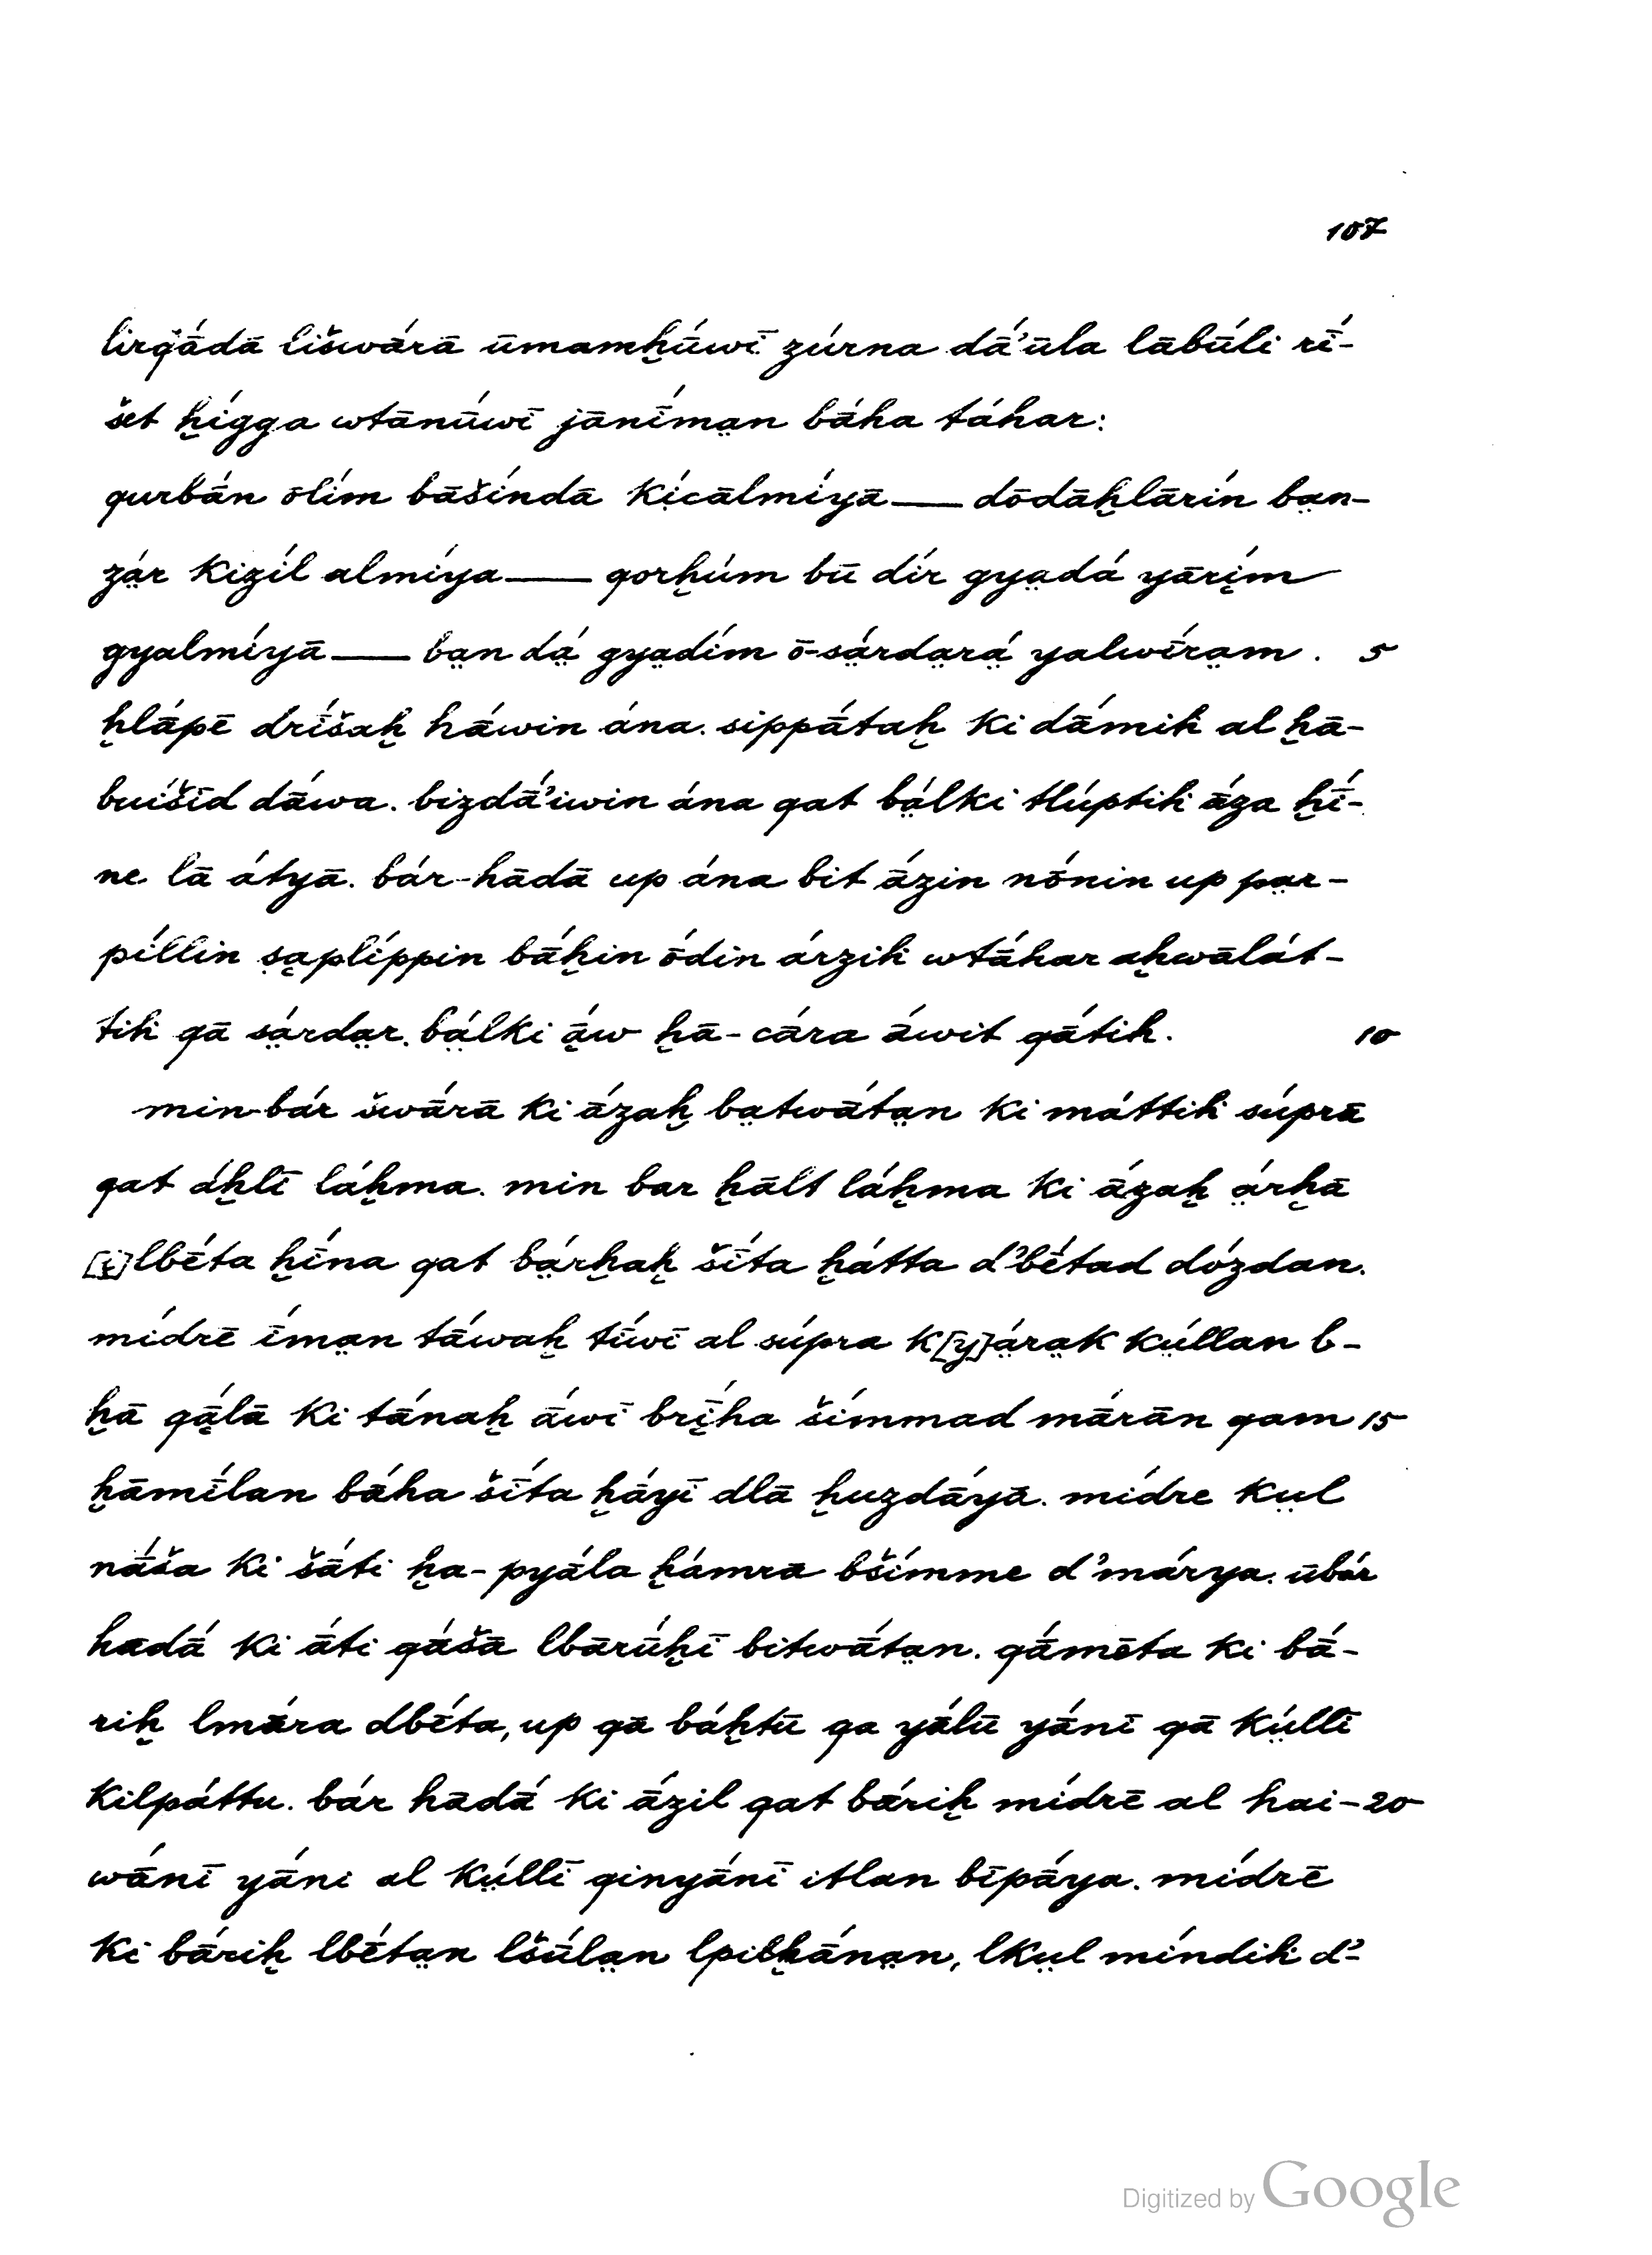 107
lirqā́dā lišwā́rā ūmamḫū́wī zúrna dā́’ūla lābū́li rī́-
šet ḫígga wtānū́wī jānī́ma̤n bā́ha táhar:
qurbā́n ōlím bāšíndā kícālmíyā — dōdāḫlārín ba̤n-
zá̤r kizíl almíya — qorḫúm bū dír gya̤dá yārím
gyalmíyā — ba̤n dá̤ gya̤dím ō-sá̤rda̤rá̤ yalwī́ra̤m . 5
ḫlā́pē drī́šaḫ hā́win ána. sippā́taḫ ki dā́mih al ḫā-
buíšīd dā́wa. bizdā́’iwin ána qat bá̤lki tlúptih ā́za ḫī́-
ne lā átyā. bár-hādā up ána bit ā́zin nṓnin up pa̤r-
píllin ṣa̤plíppin bā́ḫin ṓdin árzih wtā́har aḫwālát-
tih qā sá̤rda̤r. bá̤lki ā́w ḫā-cā́ra ā́wit qā́tih. 10
min-bár šwā́rā ki ā́zaḫ ba̤twā́ta̤n ki máttih súprā
qat áḫlī láḫma. min bar ḫālt láḫma ki ā́zaḫ á̤rḫā
[i]lbḗta ḫī́na qat bá̤rḫaḫ šī́ta ḫátta d’bḗtad dózdan.
mídrē ī́ma̤n tā́waḫ tū́wī al súpra k[y]á̤ra̤k kṳ́llan b-
ḫā qā́lā ki tā́naḫ ā́wī brī́ha šímmad mārān qam 15
ḫāmī́lan bā́ha šī́ta ḫā́yī dlā ḫuzdā́yā. mídre kṳl
nā́ša ki šā́ti ḫa-pyā́la ḫámrā bšímme d’márya. ūbár
hadā́ ki ā́ti qā́šā lbārū́ḫī bitwā́ta̤n. qā́mēta ki bā́-
riḫ lmā́ra dbḗta, up qā báḫtū qa yā́lū yā́nī qā kṳ́llī
kilpáttu. bár hādā́ ki ā́zil qat bā́riḫ mídrē al hai- 20
wā́nī yā́ni al kṳ́llī qinyā́nī itlan bīpā́ya. mídrē
ki bā́riḫ lbḗta̤n lšū́la̤n lpilḫā́na̤n, lkṳl míndih d’-
Digitized by Google